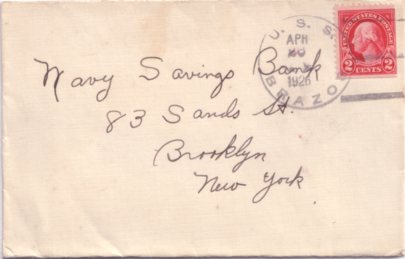 U. S. S.
APR
1926
BRAZO
UNITED STATES POSTAGE
2 CENTS 2
Navy Savings Bank
83 Sands St.
Brooklyn
New York